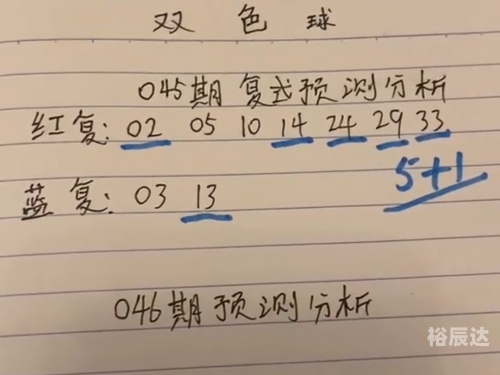 双色球
045期复式预测分析
红复: 02 05 10 14 24 29 33
5+1
蓝复: 03 13
046期预测分析
裕辰达